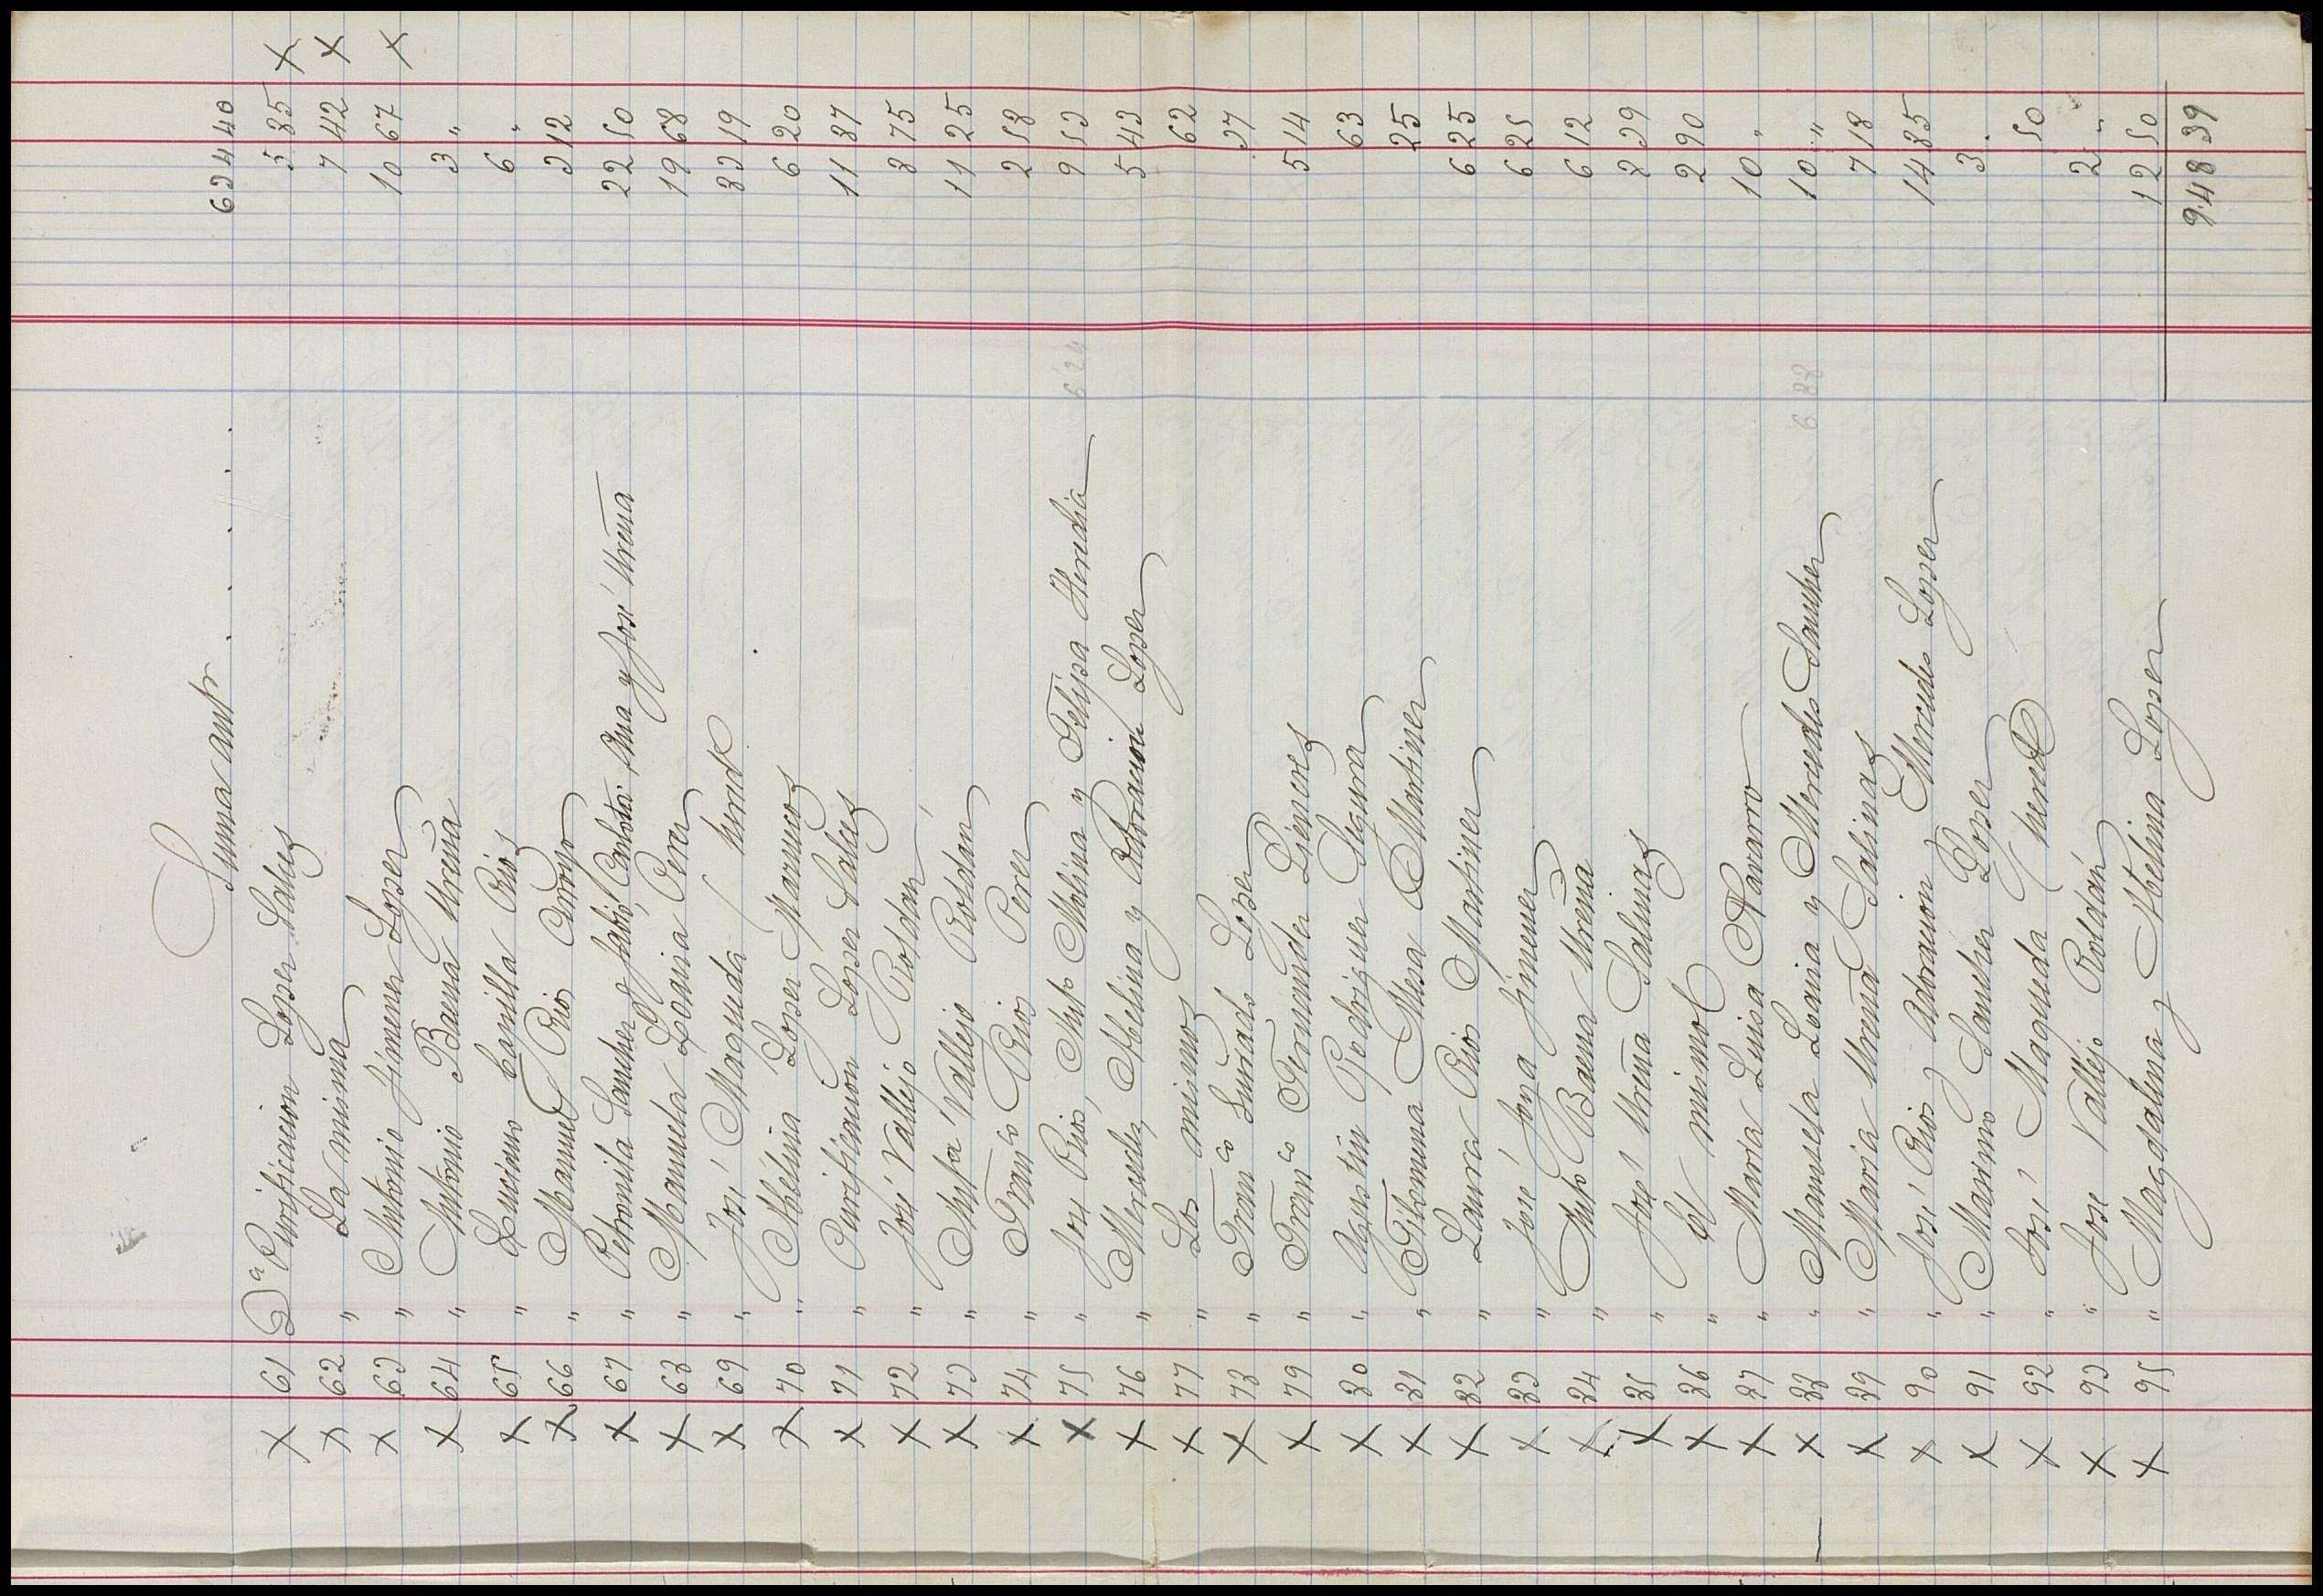 Suma ant.r . . . . . 634 40
X 61 Dª Purificacion Lopez Salas 5 85 X
X 62 " La misma 7 42 X
X 63 " Antonio Jimenez Lopez 10 67 X
X 64 " Antonio Baena Ureña 3 "
X 65 " Luciano Rios 6 "
X 66 " Manuel Rios 3 12
X 67 " Petronila Sanchez y Pablo, Carlota, Ana y José Ureña 22 50
X 68 " Manuela Perez 19 68
X 69 " José Maqueda 33 19
X 70 " Abelina Lopez 6 20
X 71 " Purificacion Lopez Salas 11 87
X 72 " José Vallejo Rosdan 8 75
X 73 " Antª Vallejo Rosdan 11 25
X 74 " Franco Rios Perez 2 58
X 75 " José Rios, Antº Molina y Felipa Heredia 9 53
X 76 " Mercedes, Abelina y Adoracion Lopez 5 43
X 77 " Los mismos 62
X 78 " Franco Lopez 37
X 79 " Franco Fernandez 5 14
X 80 " Agustin Rodriguez Segura 63
X 81 " Filomena Mesa Martinez 25
X 82 " Laura Rios Martinez 6 25
X 83 " José Jimenez 6 25
X 84 " Antº Baena Ureña 6 12
X 85 " José Ureña Salinas 8 39
X 86 " El mismo 2 90
X 87 " Maria Luisa Navarro 10 "
X 88 " Manuela y Mercedes Sanchez 10 "
X 89 " Maria Ureña Salinas 7 18
X 90 " José Rios y Adoracion y Mercedes Lopez 14 85
X 91 " Maximo Sanchez Lopez 3 "
X 92 " José Maqueda 50
X 93 " José Vallejo Roldán 2 "
X 95 " Magdalena y Abelina Lopez 12 50
948 39